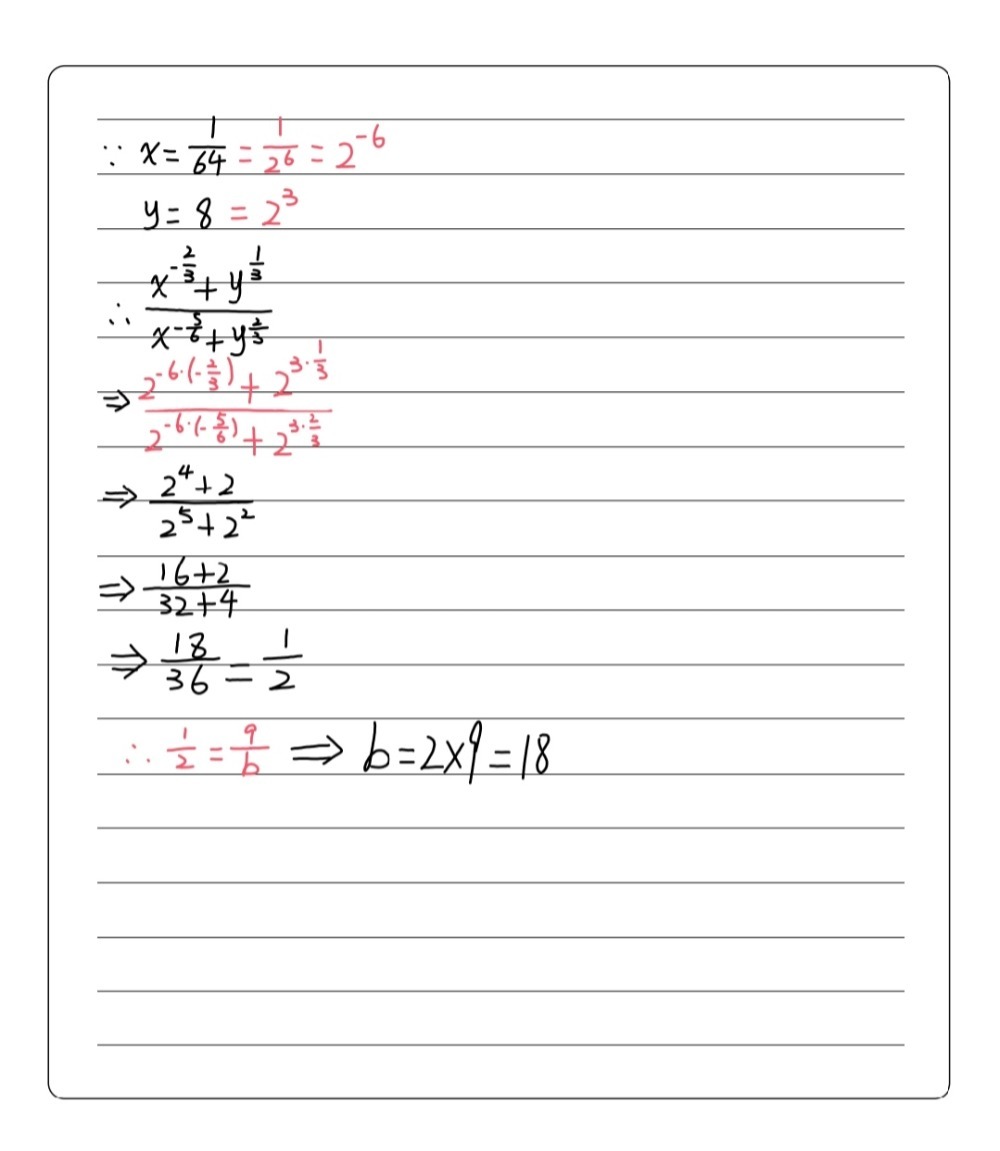 ∵ x = 1/64 = 1/2^6 = 2^-6
y = 8 = 2^3
∴ (x^(-2/3) + y^(1/3)) / (x^(-5/6) + y^(2/3))
⇒ (2^(-6·(-2/3)) + 2^(3·1/3)) / (2^(-6·(-5/6)) + 2^(3·2/3))
⇒ (2^4 + 2) / (2^5 + 2^2)
⇒ (16+2) / (32+4)
⇒ 18/36 = 1/2
∴ 1/2 = 9/b ⇒ b = 2×9 = 18